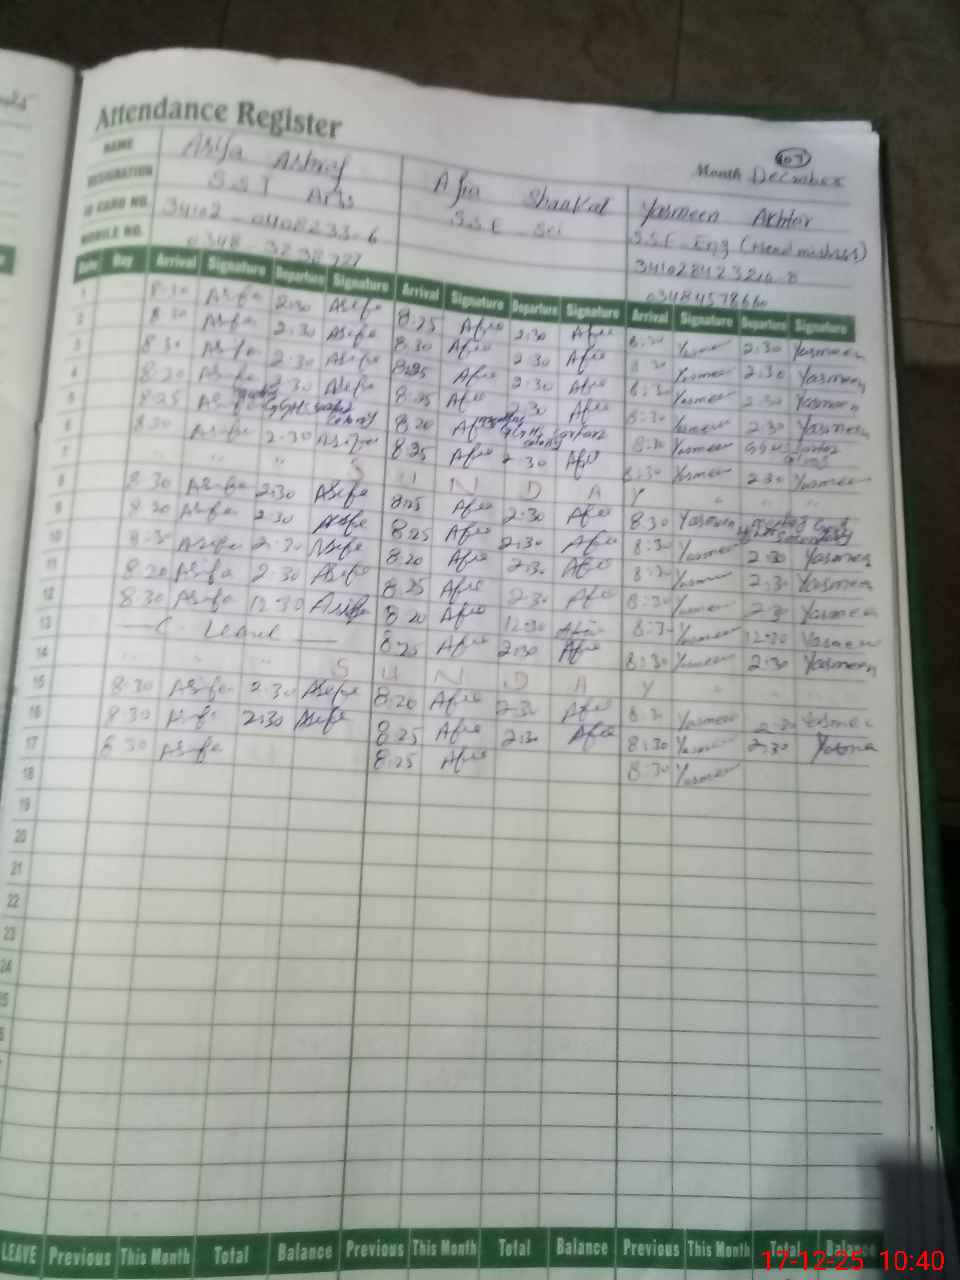 Attendance Register
Month December
NAME Asifa Ashraf Afia Shaukat Yasmeen Akhtar
DESIGNATION S.S.T Arts S.S.E Sci S.S.E Eng (Headmistress)
ID CARD NO. 34102-0408233-6
MOBILE NO. 03484578660
Date Day Arrival Signature Departure Signature Arrival Signature Departure Signature Arrival Signature Departure Signature
1 8:30 Asifa 2:30 Asifa 8:25 Afia 2:30 Afia 8:30 Yasmeen 2:30 Yasmeen
2 8:30 Asifa 2:30 Asifa 8:30 Afia 2:30 Afia 8:30 Yasmeen 2:30 Yasmeen
3 8:30 Asifa 2:30 Asifa 8:25 Afia 2:30 Afia 8:30 Yasmeen 2:30 Yasmeen
4 8:20 Asifa 2:30 Asifa 8:25 Afia 2:30 Afia 8:30 Yasmeen 2:30 Yasmeen
5 8:25 Asifa colony 8:20 Afia colony 8:30 Yasmeen
6 8:20 Asifa 2:30 Asifa 8:25 Afia 2:30 Afia 8:30 Yasmeen 2:30 Yasmeen
7 " " " S U N D A Y " "
8 8:30 Asifa 2:30 Asifa 8:25 Afia 2:30 Afia 8:30 Yasmeen
9 8:20 Asifa 2:30 Asifa 8:25 Afia 2:30 Afia 8:30 Yasmeen 2:30 Yasmeen
10 8:30 Asifa 2:30 Asifa 8:20 Afia 2:30 Afia 8:30 Yasmeen 2:30 Yasmeen
11 8:20 Asifa 2:30 Asifa 8:25 Afia 2:30 Afia 8:30 Yasmeen 2:30 Yasmeen
12 8:30 Asifa 12:30 Asifa 8:20 Afia 12:30 Afia 8:30 Yasmeen 12:30 Yasmeen
13 C. Leave 8:25 Afia 2:30 Afia 8:30 Yasmeen 2:30 Yasmeen
14 " " " S U N D A Y " "
15 8:30 Asifa 2:30 Asifa 8:20 Afia 2:30 Afia 8:30 Yasmeen 2:30 Yasmeen
16 8:30 Asifa 2:30 Asifa 8:25 Afia 2:30 Afia 8:30 Yasmeen 2:30 Yasmeen
17 8:30 Asifa 8:25 Afia 8:30 Yasmeen
18
19
20
21
22
23
24
LEAVE Previous This Month Total Balance Previous This Month Total Balance Previous This Month Total Balance
17-12-25 10:40